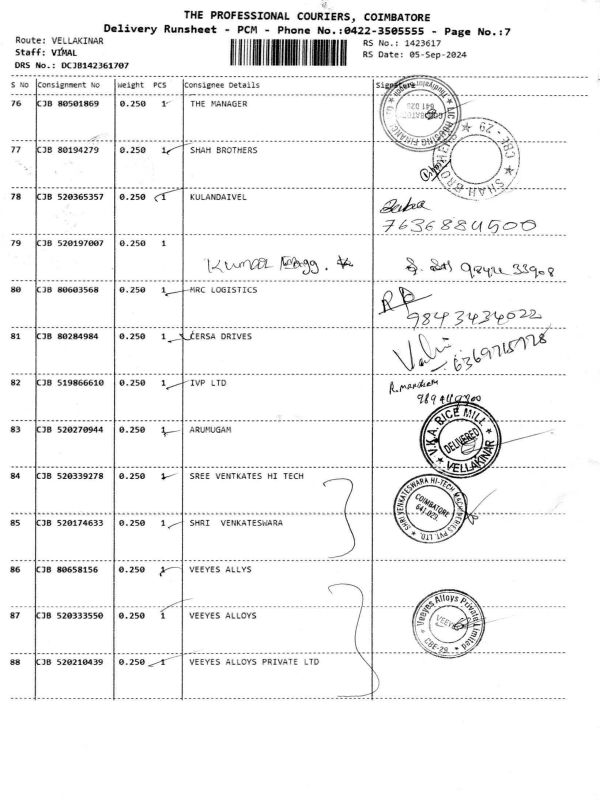 THE PROFESSIONAL COURIERS, COIMBATORE
Delivery Runsheet - PCM - Phone No.:0422-3505555 - Page No.:7
Route: VELLAKINAR RS No.: 1423617
Staff: VIMAL RS Date: 05-Sep-2024
DRS No.: DCJB142361707
S No Consignment No Weight PCS Consignee Details Signature
76 CJB 80501869 0.250 1 THE MANAGER
LIC HOUSING FINANCE
COIMBATORE
641 029
77 CJB 80194279 0.250 1 SHAH BROTHERS
SHAH BROTHERS
CBE - 29
78 CJB 520365357 0.250 1 KULANDAIVEL
7636884500
79 CJB 520197007 0.250 1
Kumar 98422 33908
80 CJB 80603568 0.250 1 MRC LOGISTICS
9843434022
81 CJB 80284984 0.250 1 CERSA DRIVES
82 CJB 519866610 0.250 1 IVP LTD
83 CJB 520270944 0.250 1 ARUMUGAM
V.K.A. RICE MILL
DELIVERED
VELLAKINAR
84 CJB 520339278 0.250 1 SREE VENTKATES HI TECH
SHRI VENKATESWARA HI-TECH MACHINERIES PVT. LTD.
COIMBATORE
641 029.
85 CJB 520174633 0.250 1 SHRI VENKATESWARA
86 CJB 80658156 0.250 1 VEEYES ALLYS
87 CJB 520333550 0.250 1 VEEYES ALLOYS
Veeyes Alloys Private Limited
VEEYES
CBE-29
88 CJB 520210439 0.250 1 VEEYES ALLOYS PRIVATE LTD